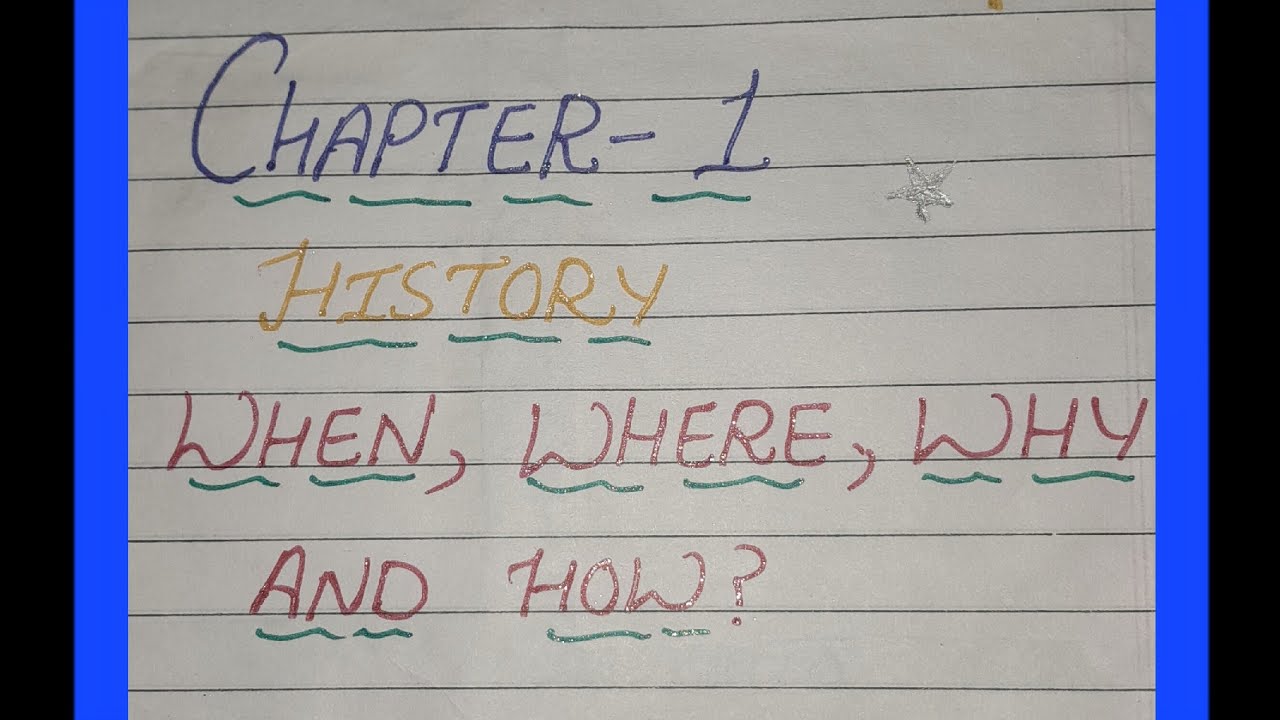 CHAPTER-1
HISTORY
WHEN, WHERE, WHY
AND HOW?